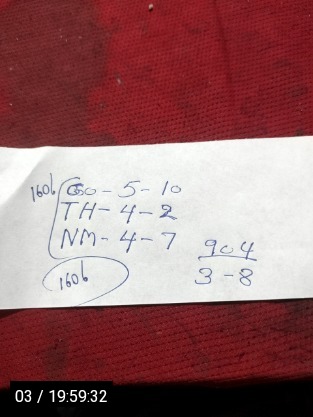 1606
Go - 5 - 10
TH - 4 - 2
NM - 4 - 7
904
3 - 8
1606
03 / 19:59:32